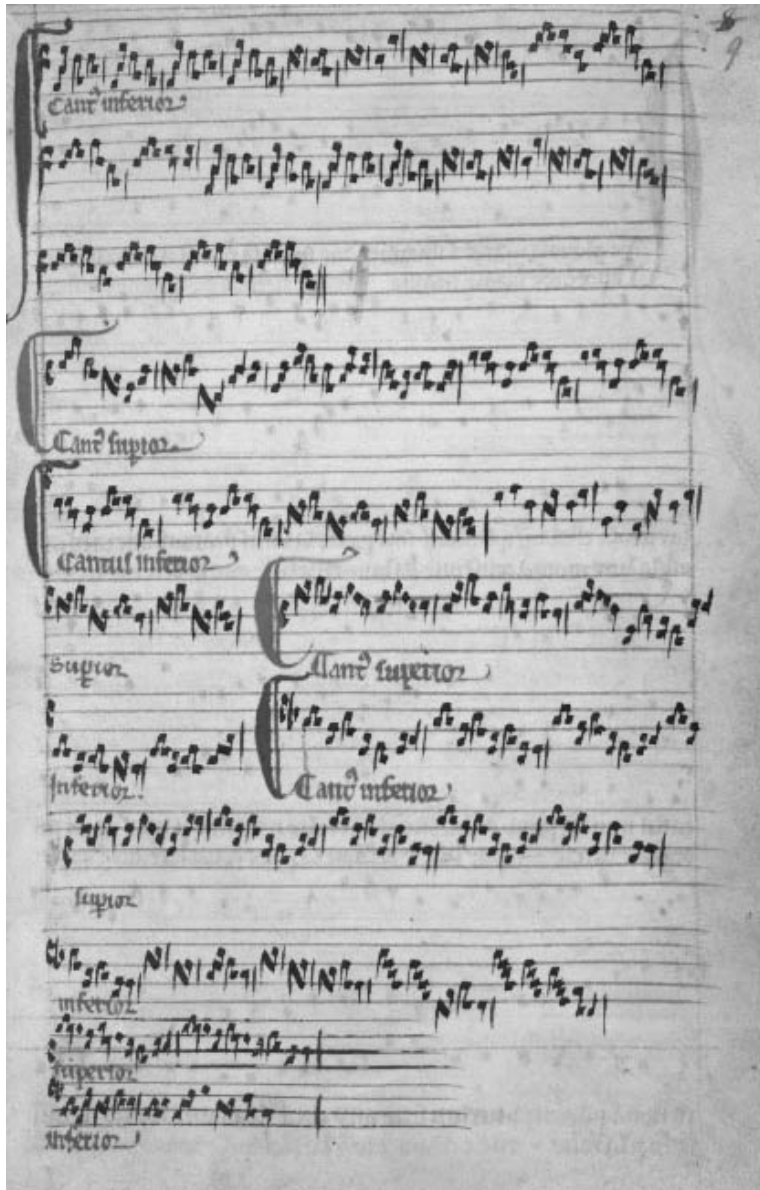 9
Cant⁹ inferior
Cant⁹ supior
Cantus inferior
Supior
Cant⁹ superior
Inferior
Cant⁹ inferior
supior
inferior
superior
inferior